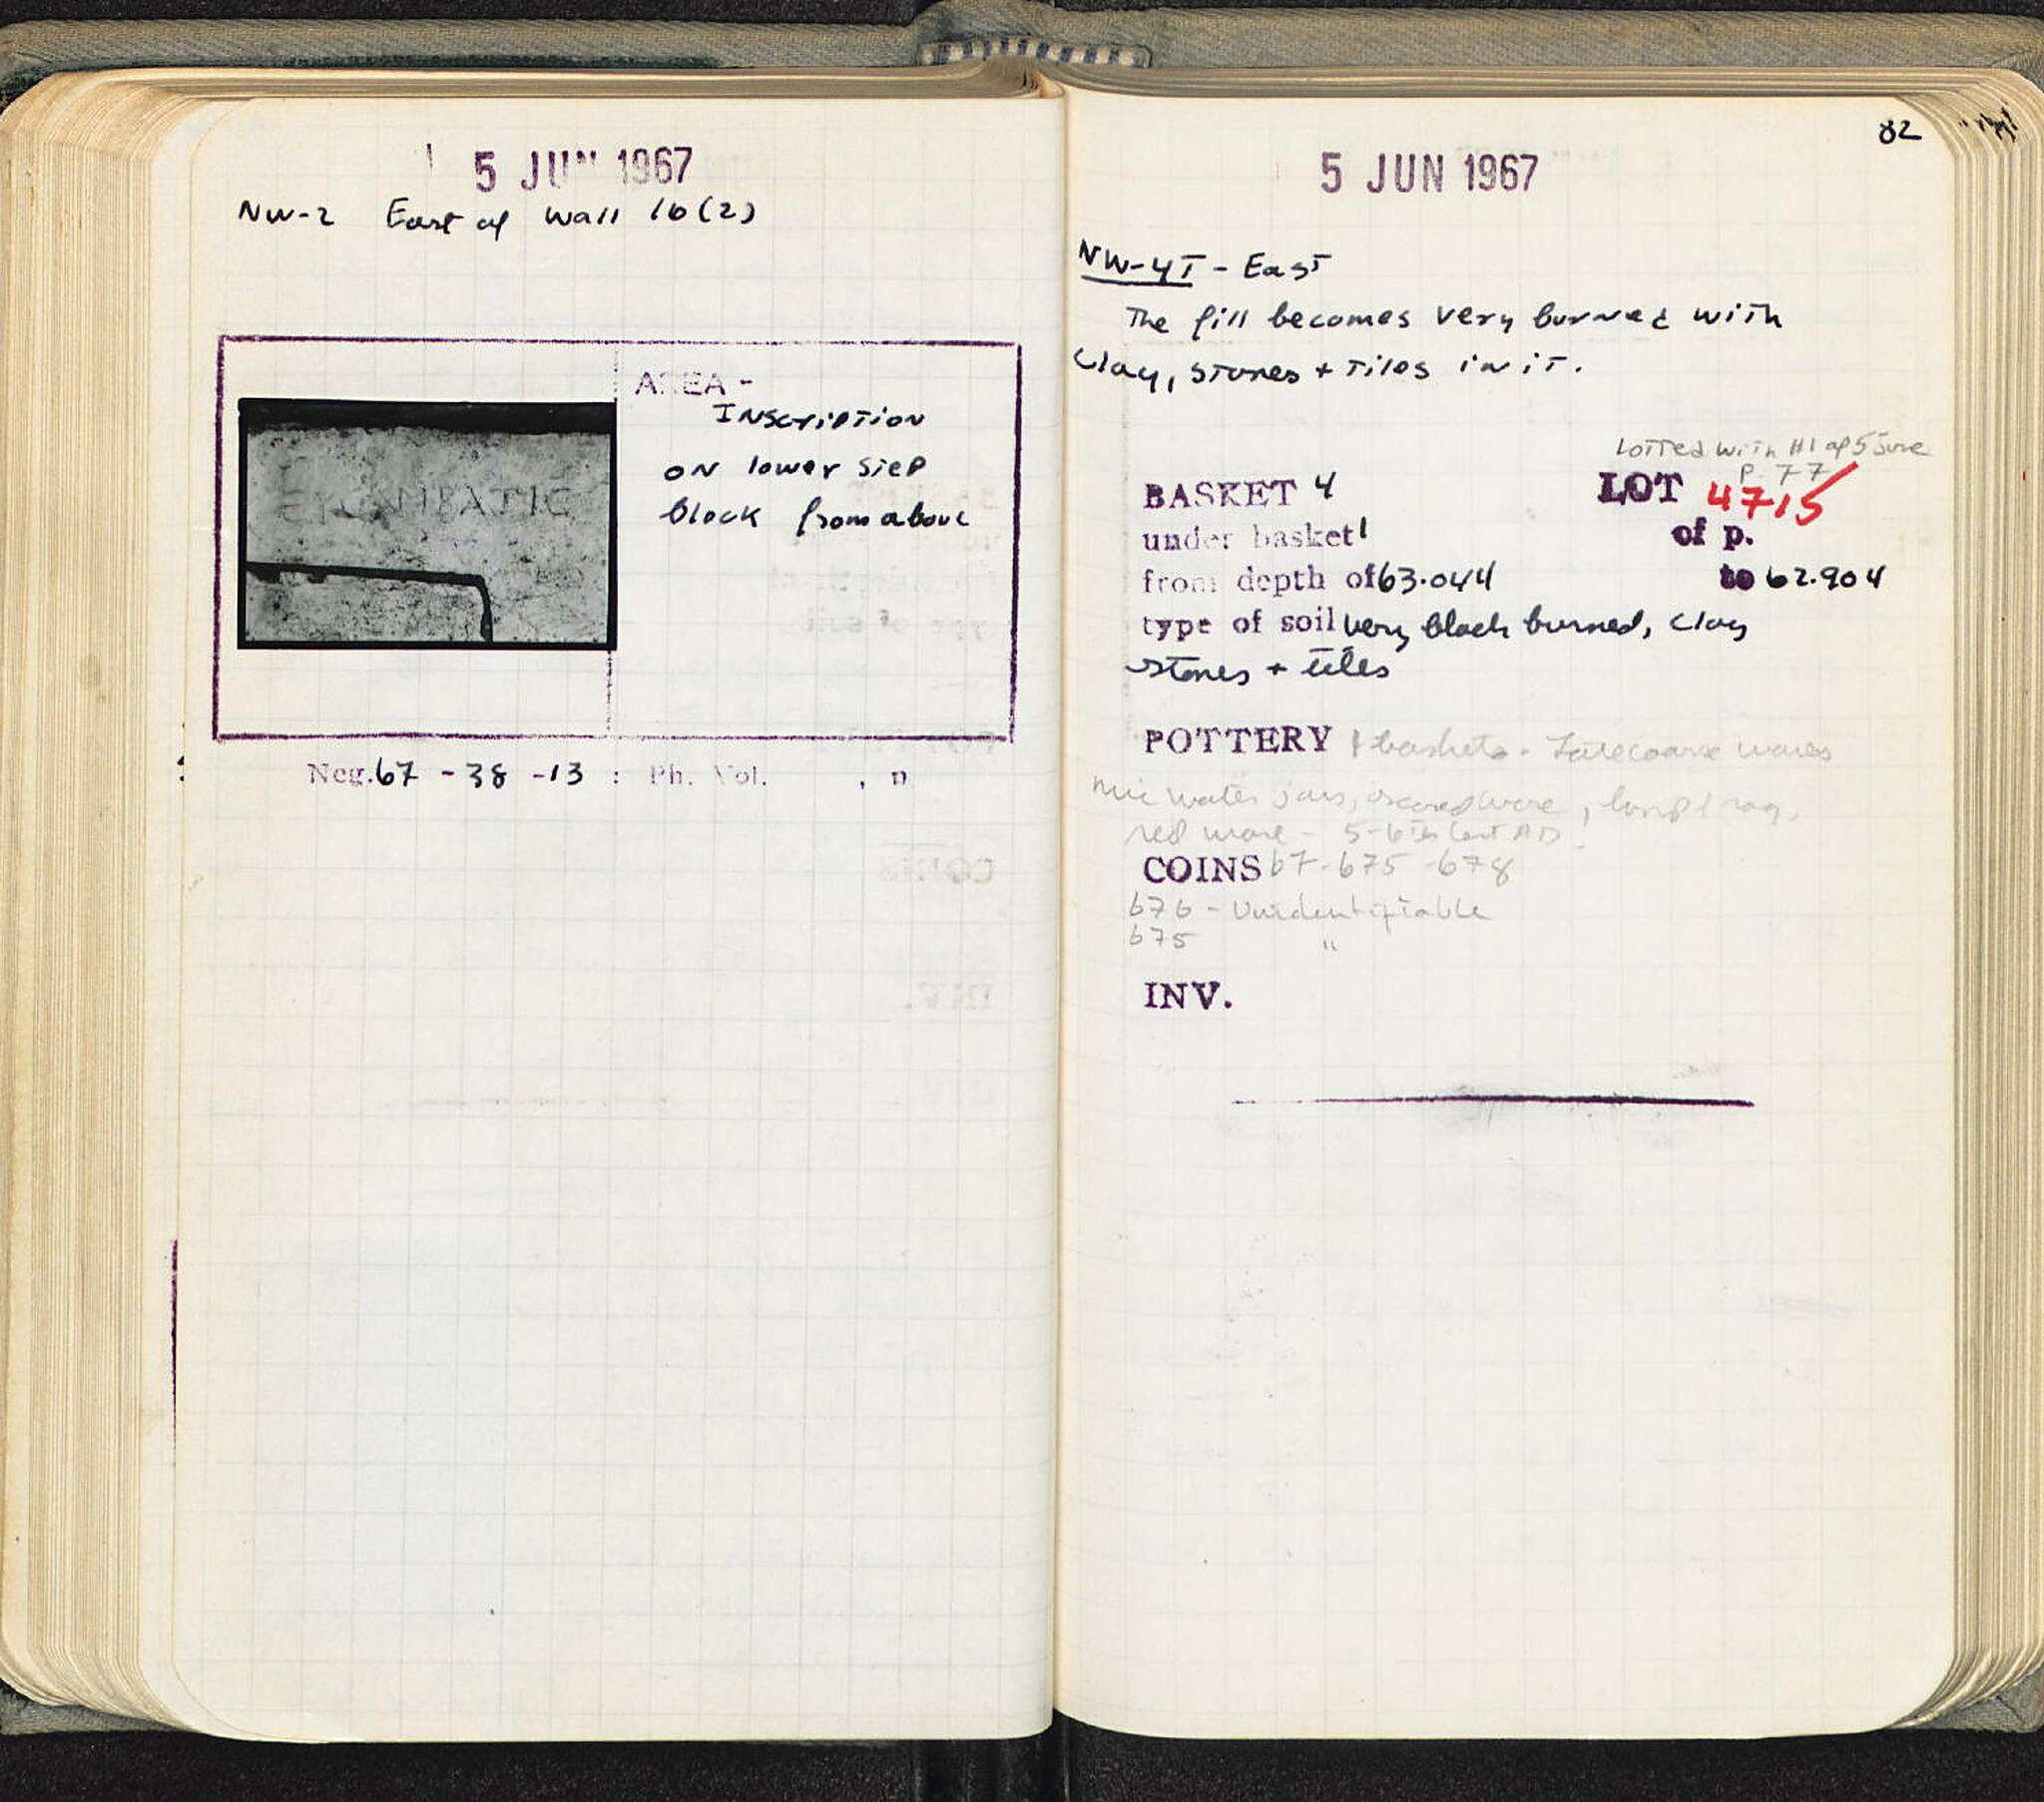 5 JUN 1967
NW-2 East of Wall 16(2)
AREA -
Inscription
on lower step
block from above
Neg. 67 - 38 - 13 : Ph. Vol. , p
82
5 JUN 1967
NW-4T - East
The fill becomes very burned with
clay, stones + tiles in it.
Lotted with #1 of 5 June
P. 77
BASKET 4 LOT 4715
under basket 1 of p.
from depth of 63.044 to 62.904
type of soil very black burned, clay
stones + tiles
POTTERY baskets. Late coarse wares
mic water jars, ware, lamp frag,
red ware - 5-6th Cent AD.
COINS 67-675 -678
676 - Unidentifiable
675 "
INV.